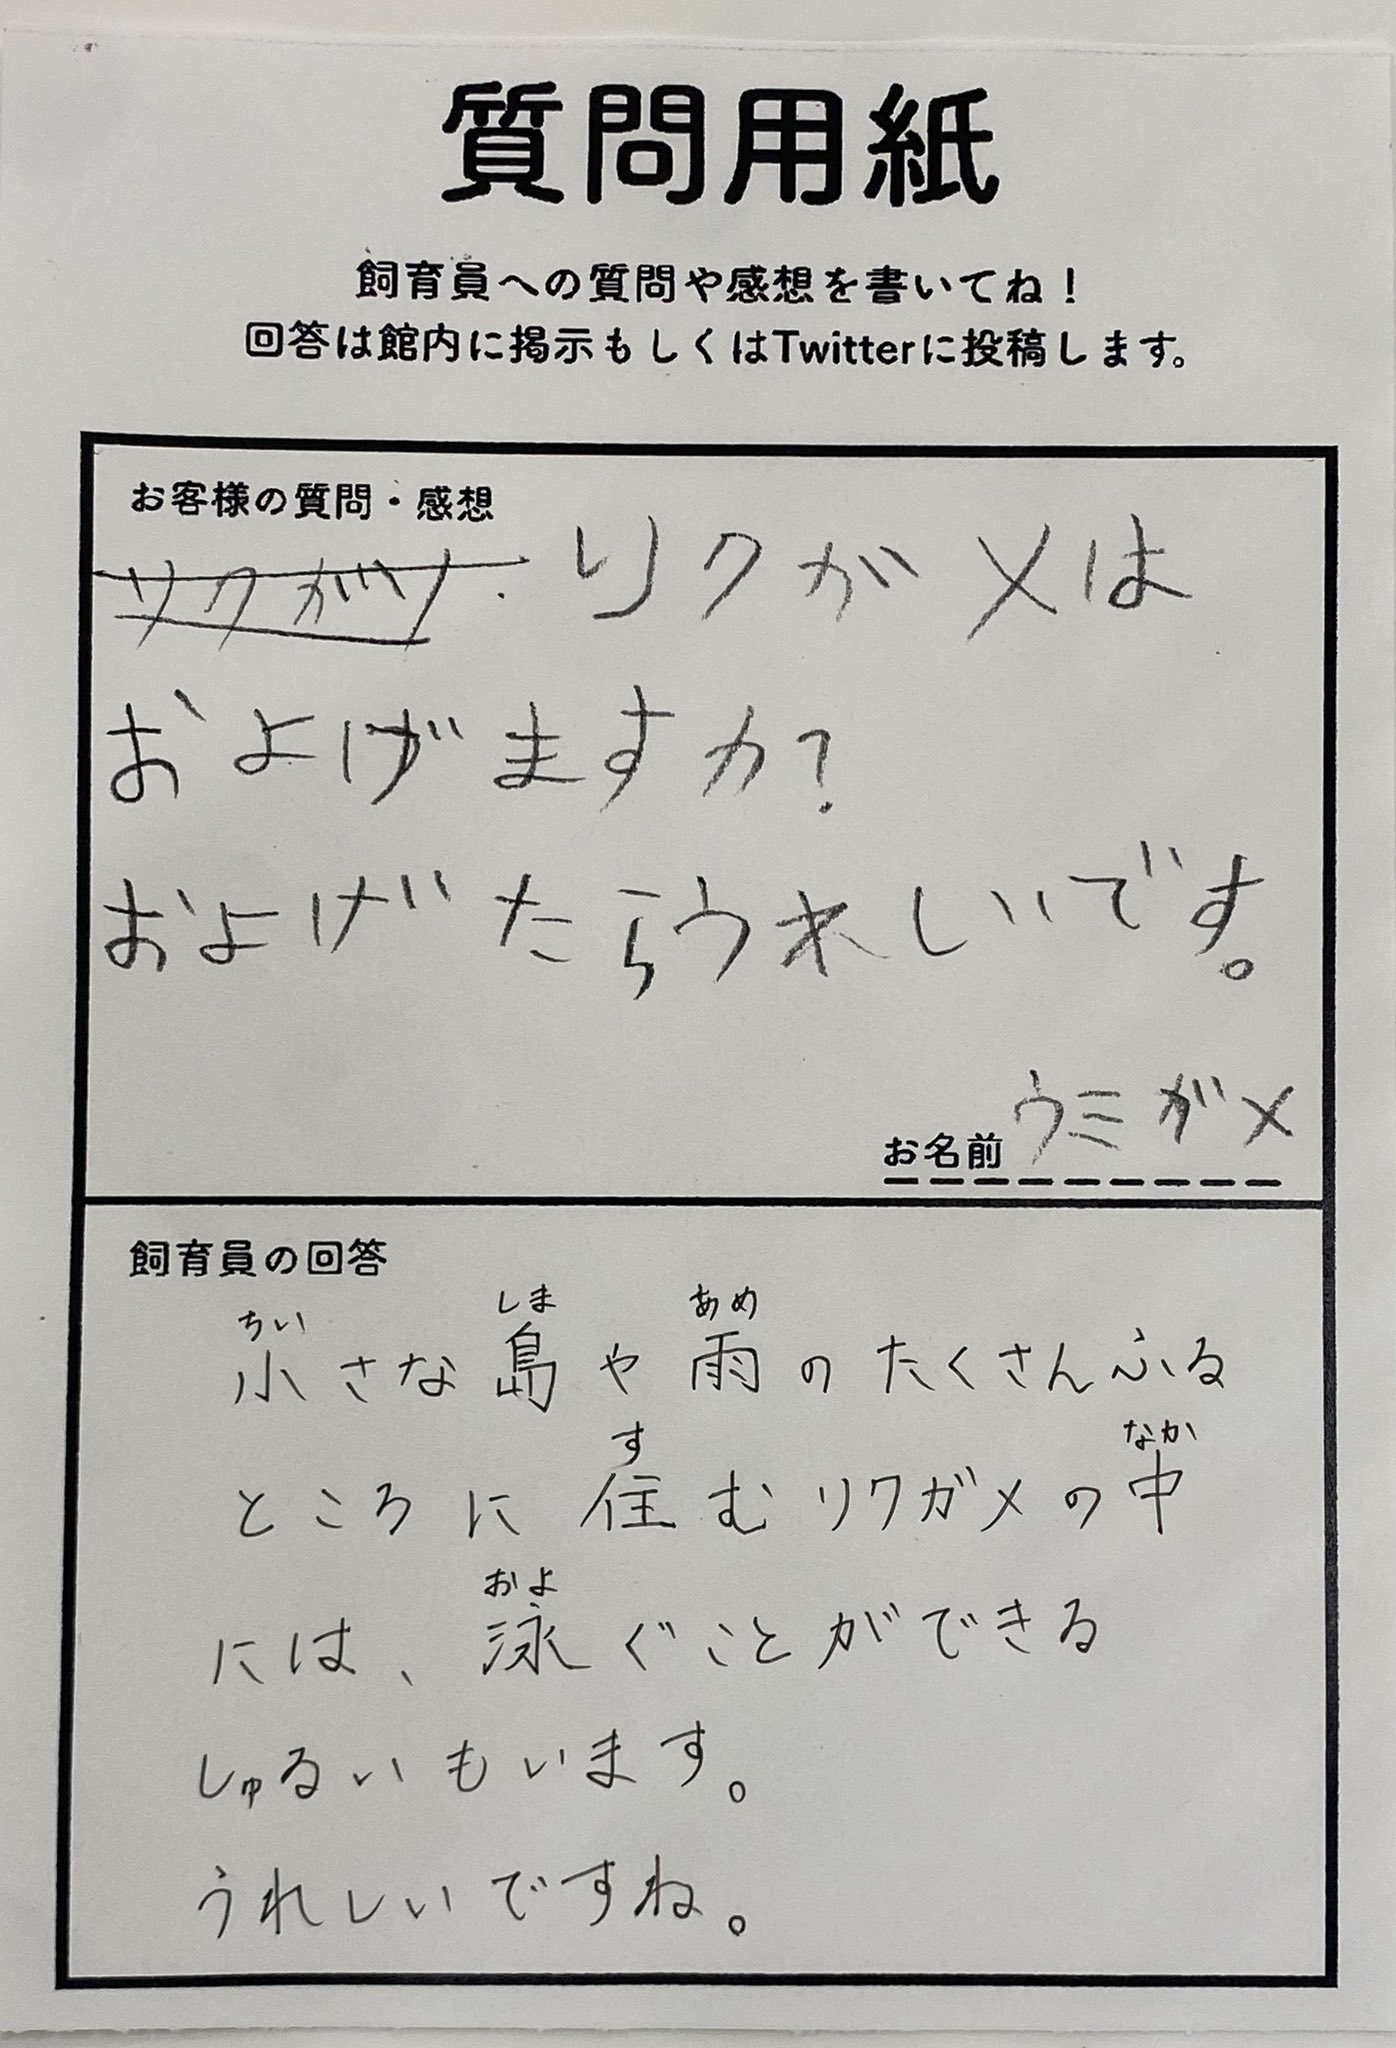 質問用紙
飼育員への質問や感想を書いてね！
回答は館内に掲示もしくはTwitterに投稿します。
お客様の質問・感想
リクがメは
およげますか？
およげたらウれしいです。
お名前 ウミガメ
飼育員の回答
小さな島や雨のたくさんふる
ちい しま あめ
ところに住むリクガメの中
す なか
には、泳ぐことができる
およ
しゅるいもいます。
うれしいですね。